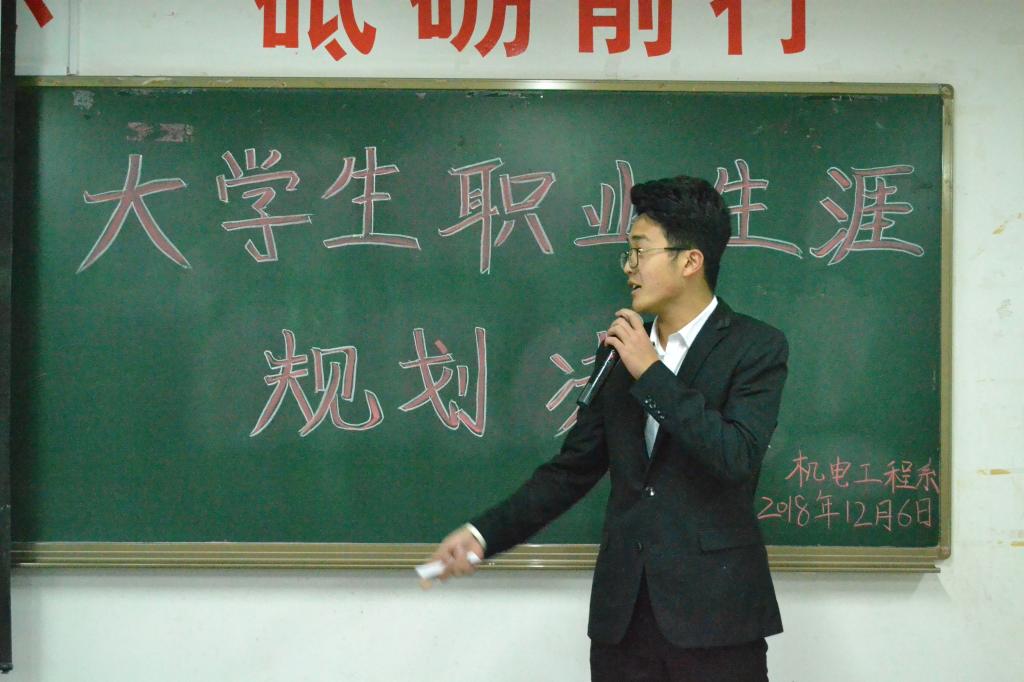 砥砺前行
大学生职业生涯
规划
机电工程系
2018年12月6日